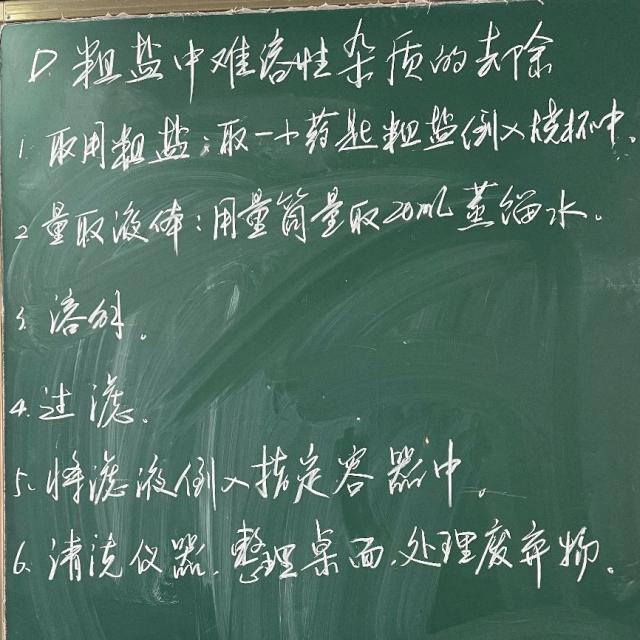 D. 粗盐中难溶性杂质的去除
1. 取用粗盐：取一小药匙粗盐倒入烧杯中。
2. 量取液体：用量筒量取20mL蒸馏水。
3. 溶解。
4. 过滤。
5. 将滤液倒入指定容器中。
6. 清洗仪器，整理桌面，处理废弃物。